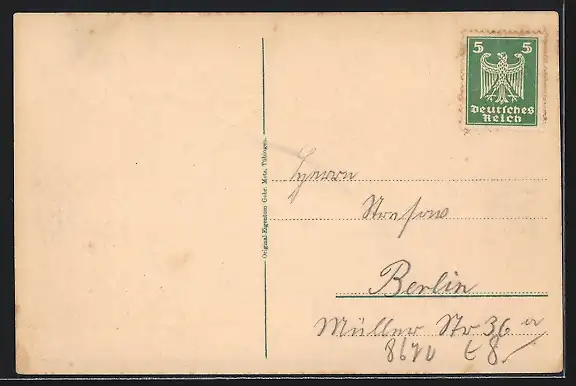 5 5
Deutsches
Reich
Original-Eigentum Gebr. Metz, Tübingen.
Herrn
Stresow
Berlin
Müller Str 36 a
8620 £8